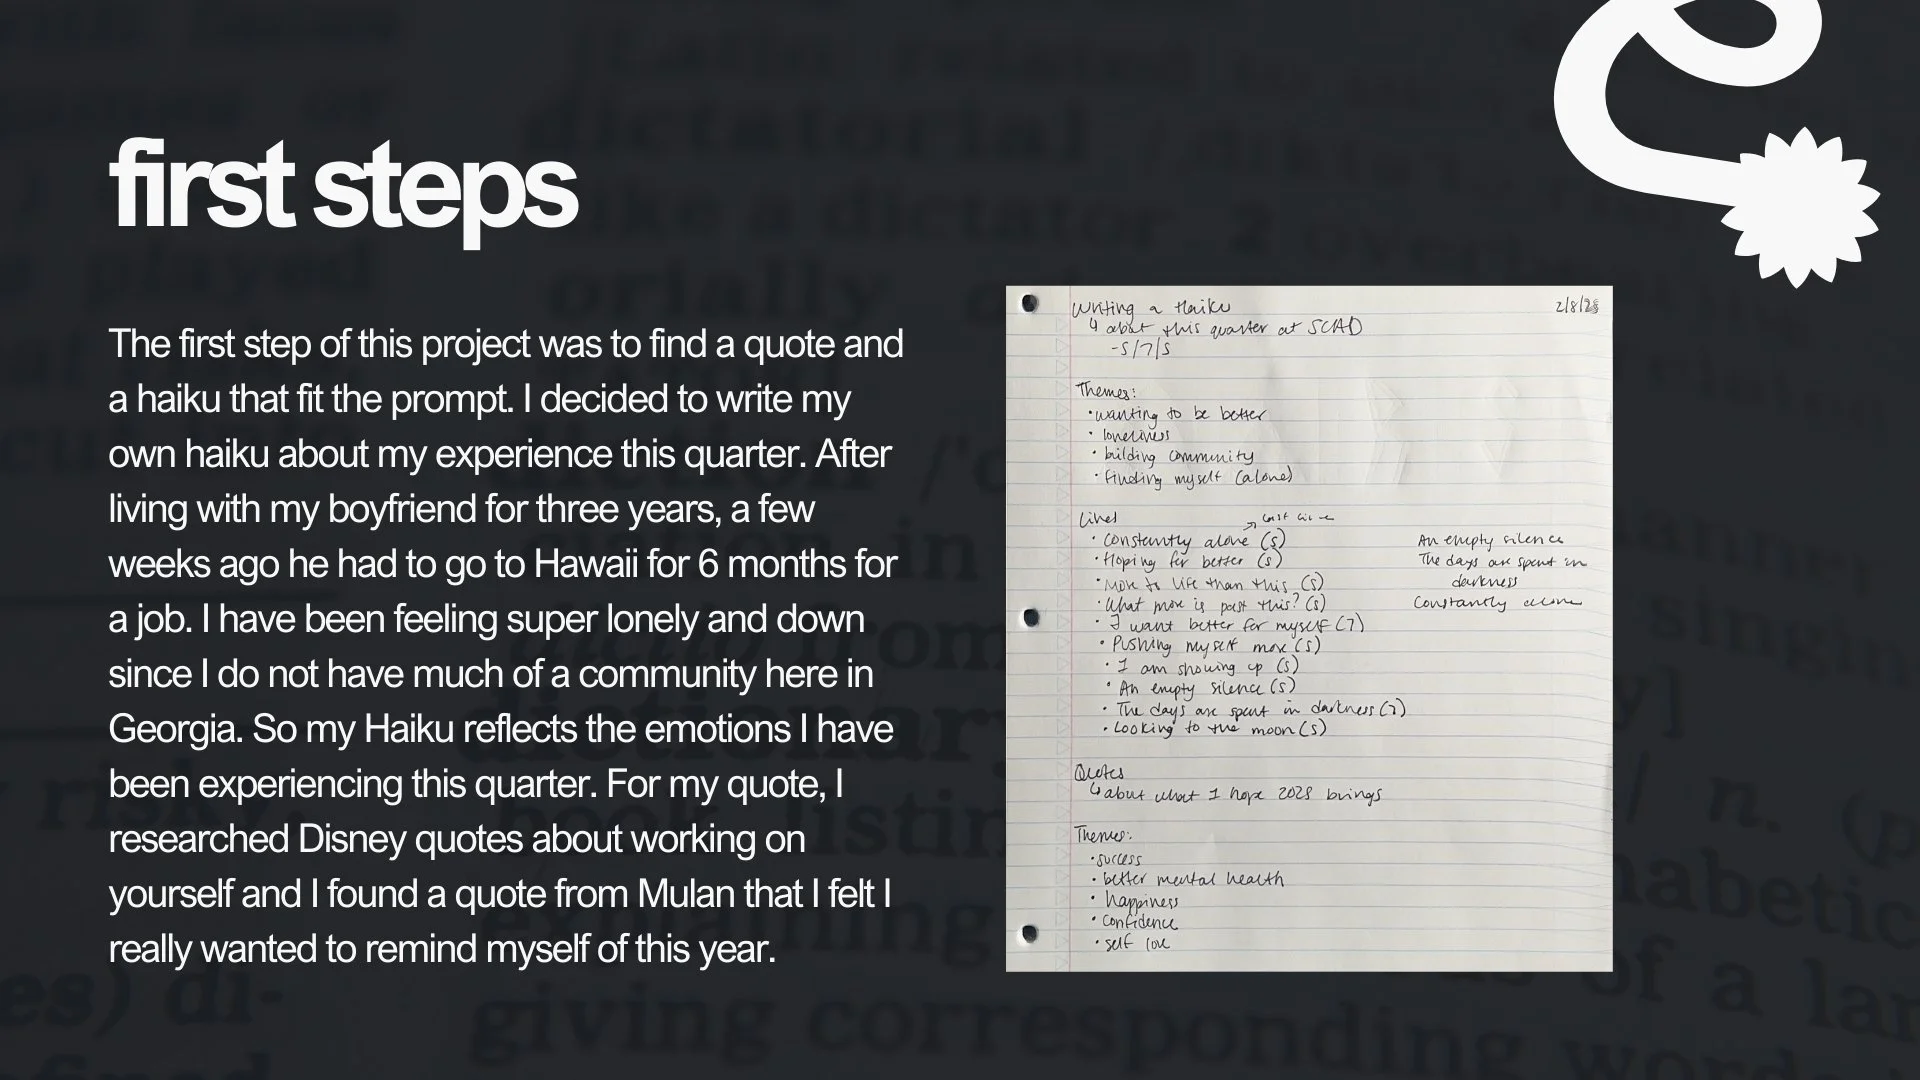 first steps
The first step of this project was to find a quote and
a haiku that fit the prompt. I decided to write my
own haiku about my experience this quarter. After
living with my boyfriend for three years, a few
weeks ago he had to go to Hawaii for 6 months for
a job. I have been feeling super lonely and down
since I do not have much of a community here in
Georgia. So my Haiku reflects the emotions I have
been experiencing this quarter. For my quote, I
researched Disney quotes about working on
yourself and I found a quote from Mulan that I felt I
really wanted to remind myself of this year.
Writing a Haiku
2/8/25
↳ about this quarter at SCAD
-5/7/5
Themes:
• wanting to be better
• loneliness
• building community
• finding myself (alone)
Lines
• Constantly alone (5)
• Hoping for better (5)
• More to life than this (5)
• What more is past this? (5)
• I want better for myself (7)
• Pushing myself more (5)
• I am showing up (5)
• An empty silence (5)
• The days are spent in darkness (7)
• Looking to the moon (5)
An empty silence
The days are spent in
darkness
Constantly alone
Quotes
↳ about what I hope 2025 brings
Themes:
• success
• better mental health
• happiness
• confidence
• self love
[Latin related
dictatorial
like a dictator 2
orially
played
dictionary
book listing
risky.
n.
giving corresponding words
of a lan
es) di-